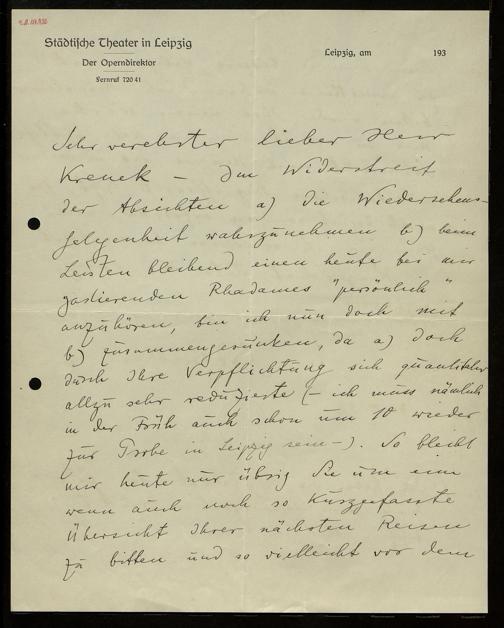 Städtische Theater in Leipzig
Der Operndirektor
Fernruf 720 41
Leipzig, am 193
Sehr verehrter lieber Herr
Krenek – Im Widerstreit
der Absichten a) die Wiedersehens-
gelegenheit wahrzunehmen b) beim
Leisten bleibend einen heute bei mir
gastierenden Rhadames "persönlich"
anzuhören, bin ich nun doch mit
b) zusammengesunken, da a) doch
durch Ihre Verpflichtung sich quantitativ
allzu sehr reduzierte (– ich muss nämlich
in der Früh auch schon um 10 wieder
zur Probe in Leipzig sein –). So bleibt
mir heute nur übrig Sie um eine
wenn auch noch so kurzgefasste
Übersicht Ihrer nächsten Reisen
zu bitten und so vielleicht vor dem